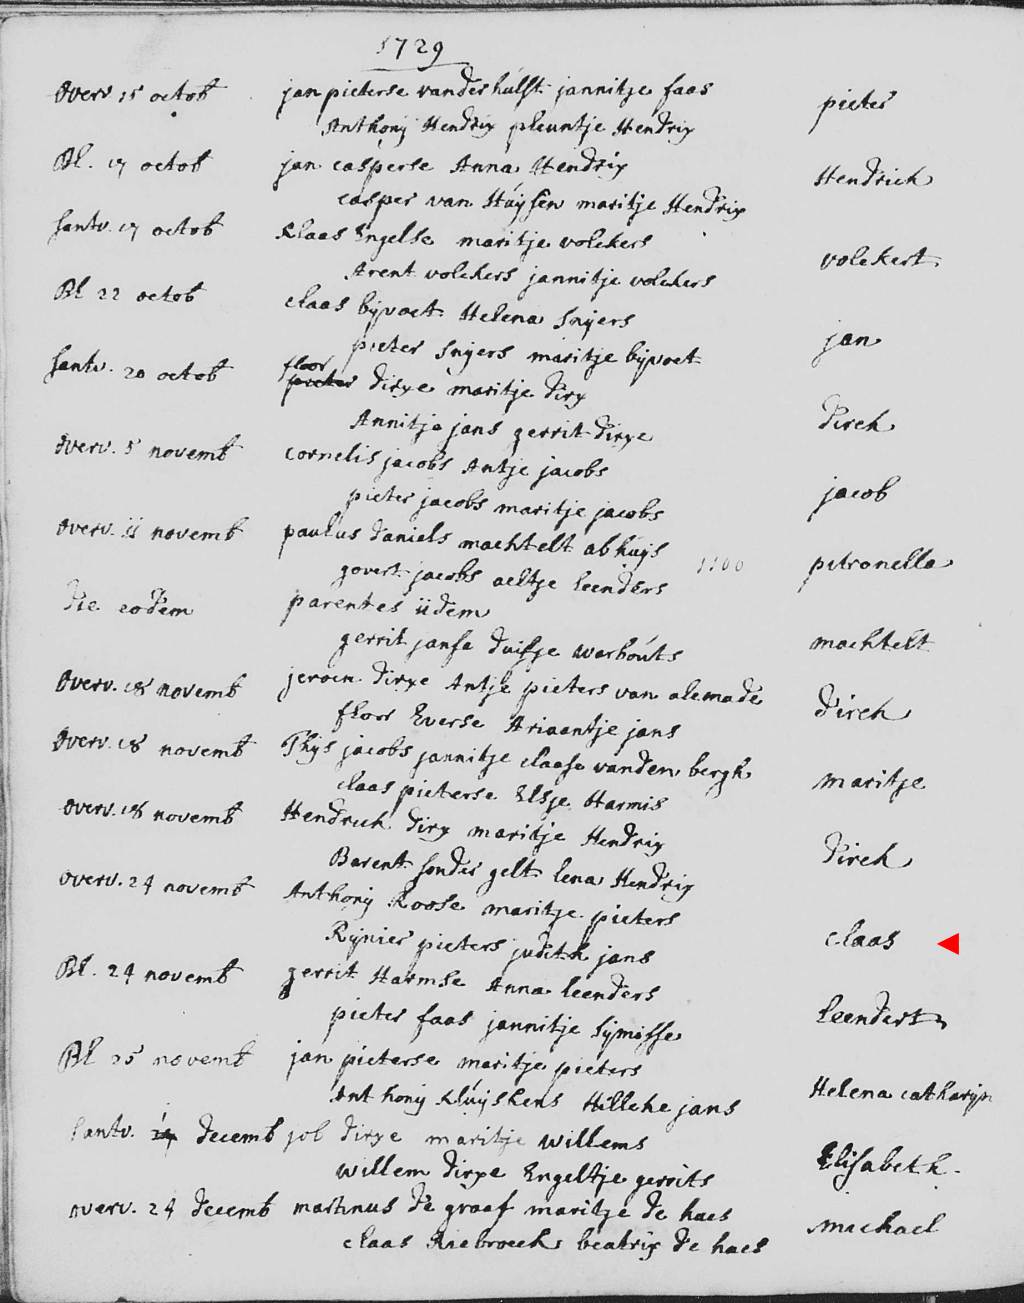 1729
overv. 15 octob jan pieterse vander hulst jannitje faas pieter
Anthonij Hendrix pleuntje Hendrix
Bl. 17 octob jan casperse Anna Hendrix Hendrick
casper van Huijsen maritje Hendrix
santv. 17 octob klaas Engelse maritje volckers volckert
Arent volckers jannitje volckers
Bl 22 octob claas bijvoet Helena snijers jan
pieter snijers maritje bijvoet
floor
santv. 20 octob pieter dirxe maritje dirx dirck
Annitje jans gerrit dirxe
overv. 5 novemb cornelis jacobs Antje jacobs jacob
pieter jacobs maritje jacobs
overv. 11 novemb paulus daniels machtelt abhuijs petronella
govert jacobs aeltje leenders 1100
die eodem parentes iidem machtelt
gerrit janse duifje warbouts
overv. 18 novemb jeroen dirxe Antje pieters van alemade dirck
floor Everse Ariaantje jans
overv. 18 novemb Thijs jacobs jannitje claase vanden bergh maritje
claas pieterse Elsje Harmis
overv. 18 novemb Hendrick dirx maritje Hendrix dirck
Barent sonder gelt lena Hendrix
overv. 24 novemb Anthonij Roose maritje pieters claas
Rijnier pieters judith jans
Bl. 24 novemb gerrit Harmse Anna leenders leendert
pieter faas jannitje sijmosse
Bl 25 novemb jan pieterse maritje pieters Helena catharijn
Anthonij kluijskens Hilleke jans
santv. decemb jol dirxe maritje willems Elisabeth.
willem dirxe Engeltje gerrits
overv. 24 decemb martinus de graaf maritje de haes michael
claas Riebroeck beatrix de haes